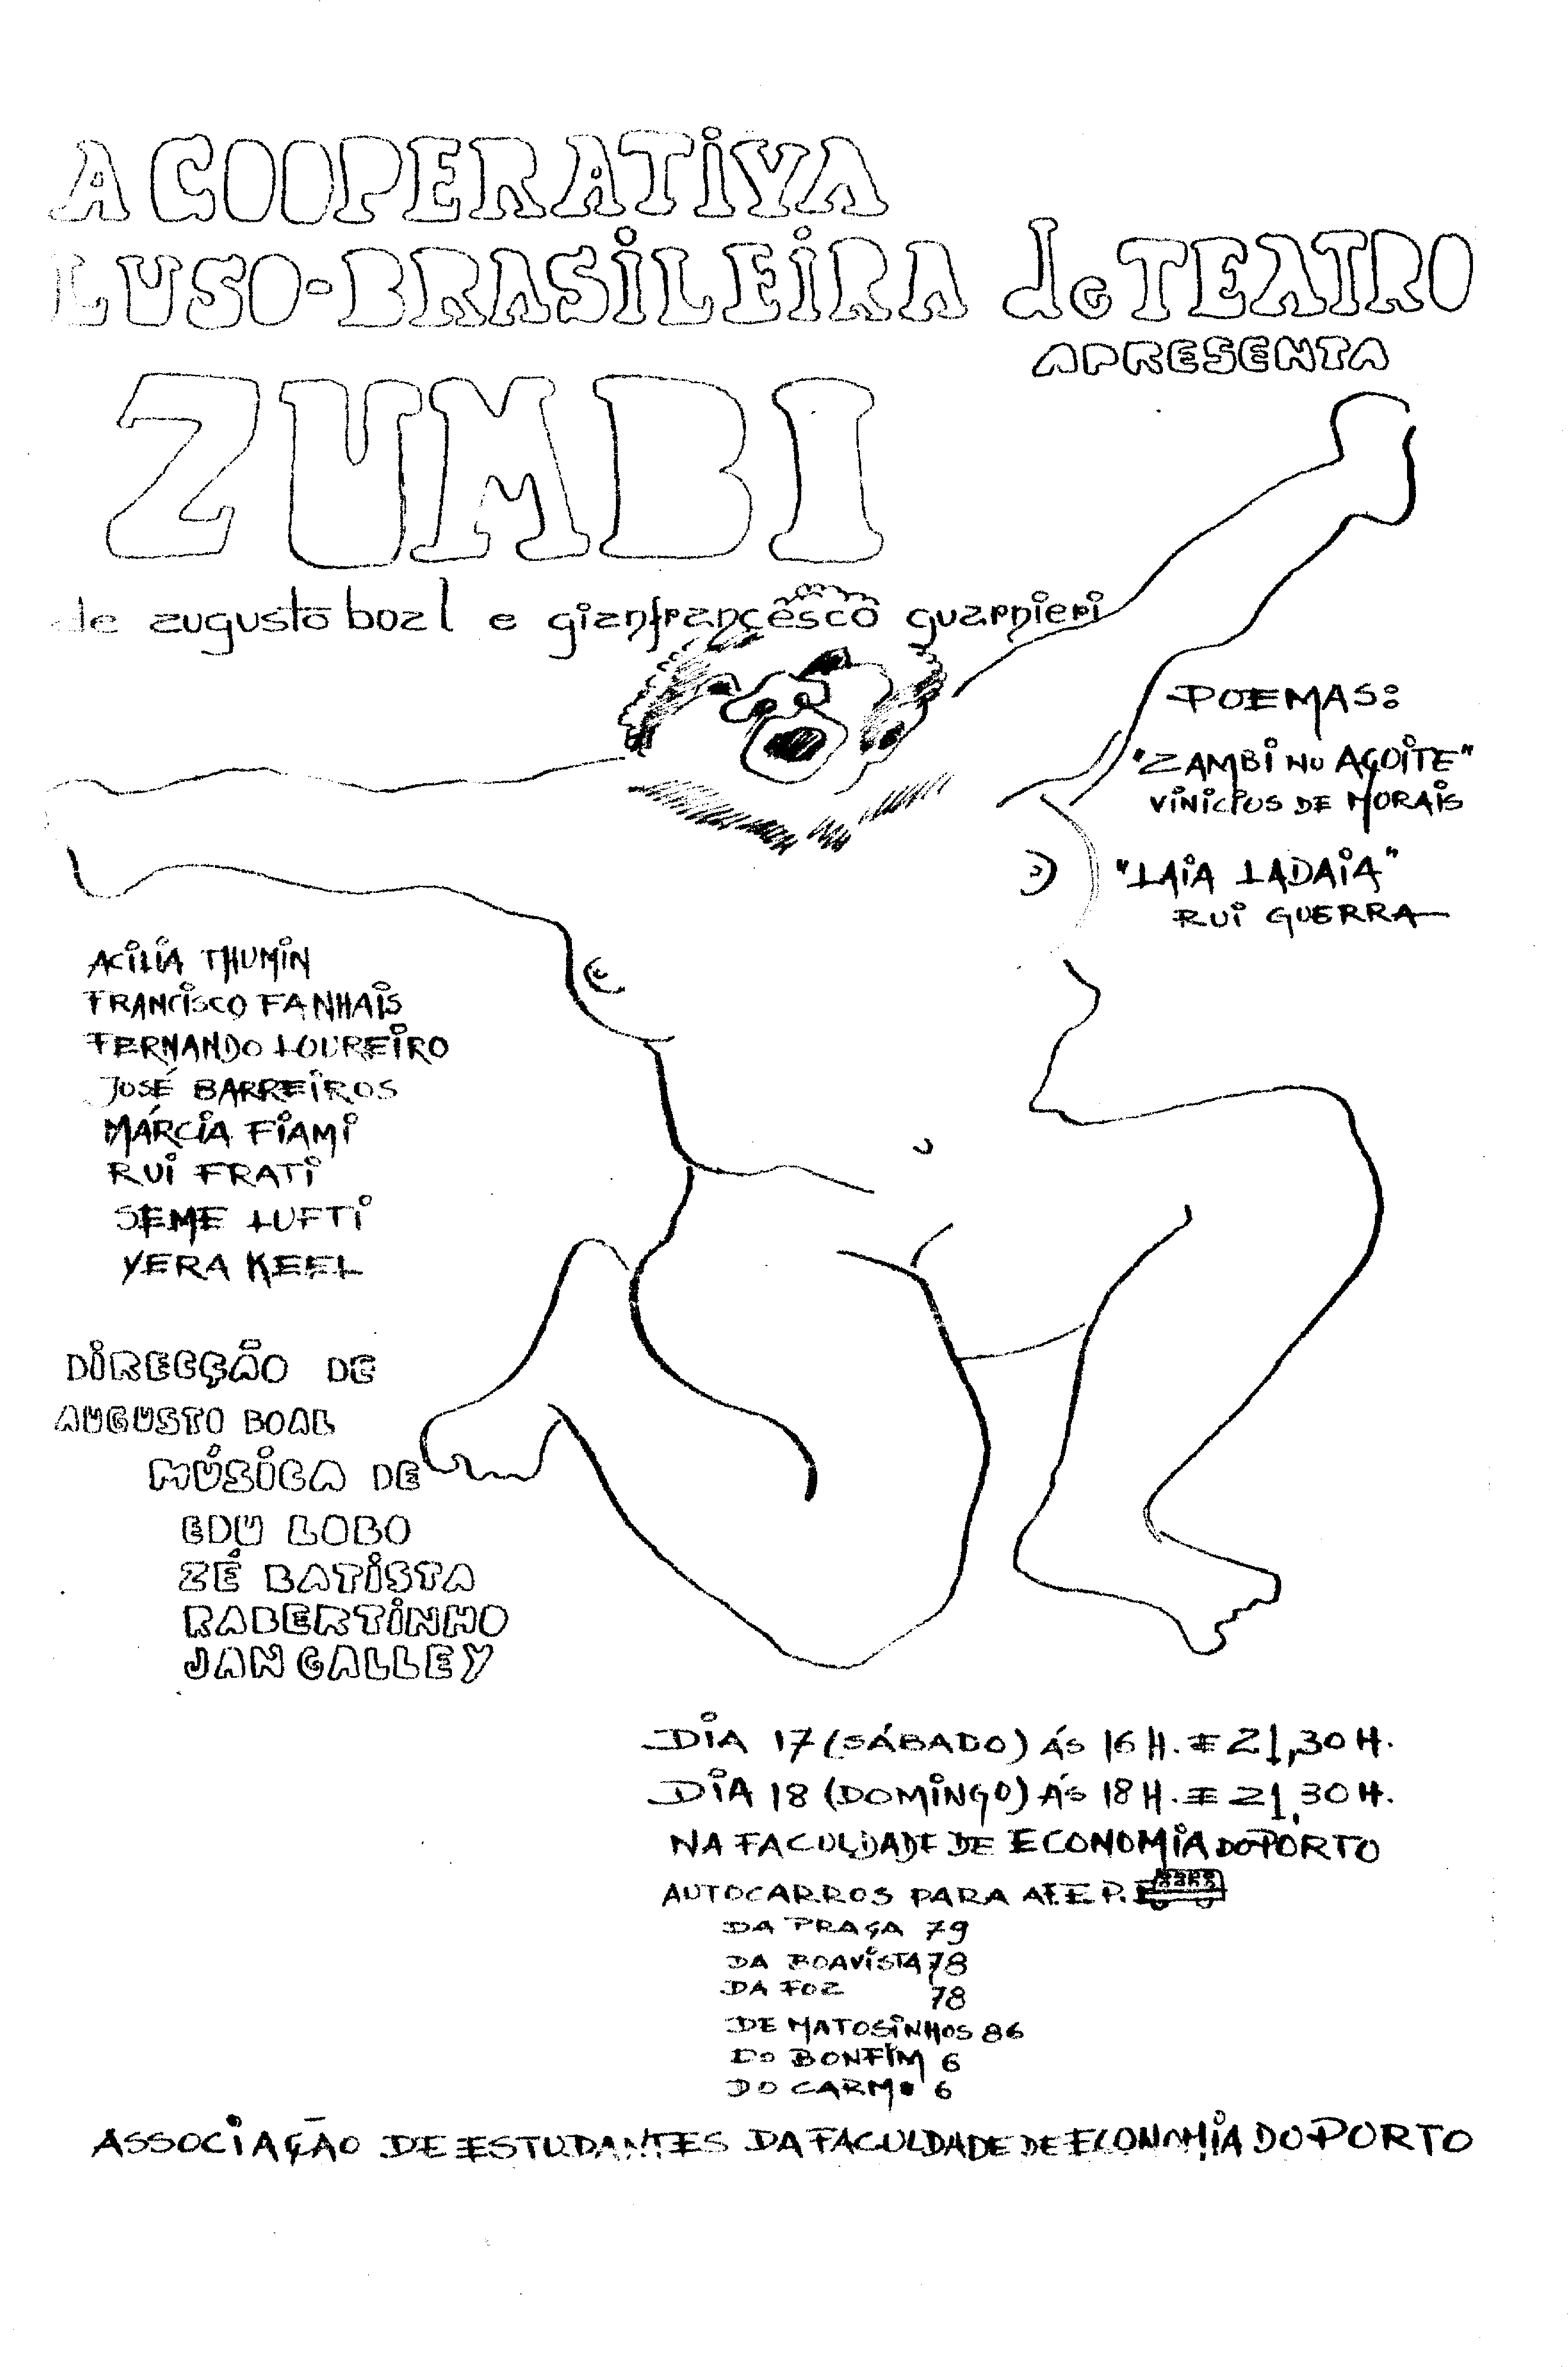 A COOPERATIVA
LUSO-BRASILEIRA de TEATRO
APRESENTA
ZUMBI
de augusto boal e gianfrancesco guarnieri
POEMAS:
"ZAMBI NO AÇOITE"
VINICIUS DE MORAIS
"LAIA LADAIA"
RUI GUERRA
ACILIA THUMIN
FRANCISCO FANHAIS
FERNANDO LOUREIRO
JOSÉ BARREIROS
MÁRCIA FIAMI
RUI FRATI
SEME LUFTI
VERA KEEL
DIRECÇÃO DE
AUGUSTO BOAL
MÚSICA DE
EDU LOBO
ZÉ BATISTA
RABERTINHO
JAN GALLEY
DIA 17 (SÁBADO) ÁS 16 H. E 21,30 H.
DIA 18 (DOMINGO) ÁS 18 H. E 21,30 H.
NA FACULDADE DE ECONOMIA DO PORTO
AUTOCARROS PARA A F.E.P.
DA PRAÇA 79
DA BOAVISTA 78
DA FOZ 78
DE MATOSINHOS 86
DO BONFIM 6
DO CARMO 6
ASSOCIAÇÃO DE ESTUDANTES DA FACULDADE DE ECONOMIA DO PORTO